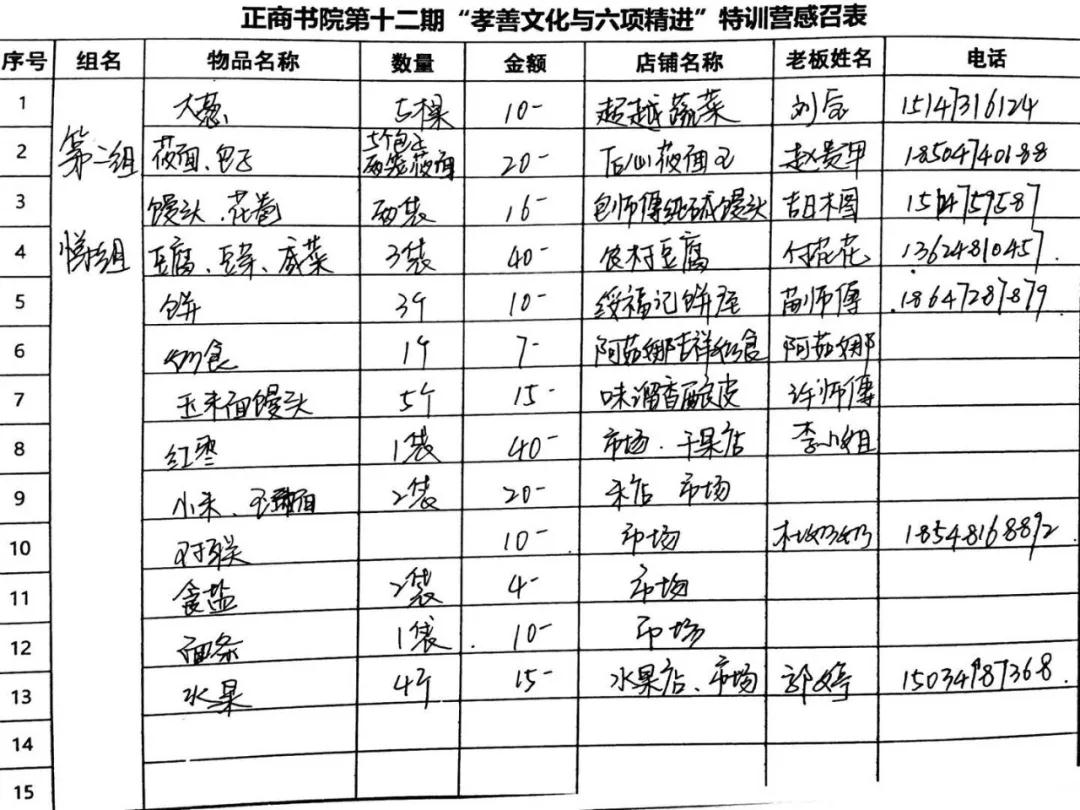 正商书院第十二期“孝善文化与六项精进”特训营感召表
序号 组名 物品名称 数量 金额 店铺名称 老板姓名 电话
1 大葱 5棵 10- 超越蔬菜 刘 15147316124
2 第二组 莜面、包子 5个包子 两笼莜面 20- 后山莜面王 赵贵军 18504740188
3 馒头、花卷 两袋 16- 包师傅纯碱馒头 吉日木图 1514759587
4 组 豆腐、豆芽、咸菜 3袋 40- 农村豆腐 付花花 13624810457
5 饼 3个 10- 绥福记饼屋 苗师傅 18647287879
6 奶食 1个 7- 阿茹娜吉祥奶食 阿茹娜
7 玉米面馒头 5个 15- 味溜香酿皮 许师傅
8 红枣 1袋 40- 市场·干果店 李小姐
9 小米、玉 面 2袋 20- 米店 市场
10 对联 10- 市场 杜奶奶 18548168892
11 食盐 2袋 4- 市场
12 面条 1袋 10- 市场
13 水果 4个 15- 水果店、市场 郭婷 15034787368
14
15